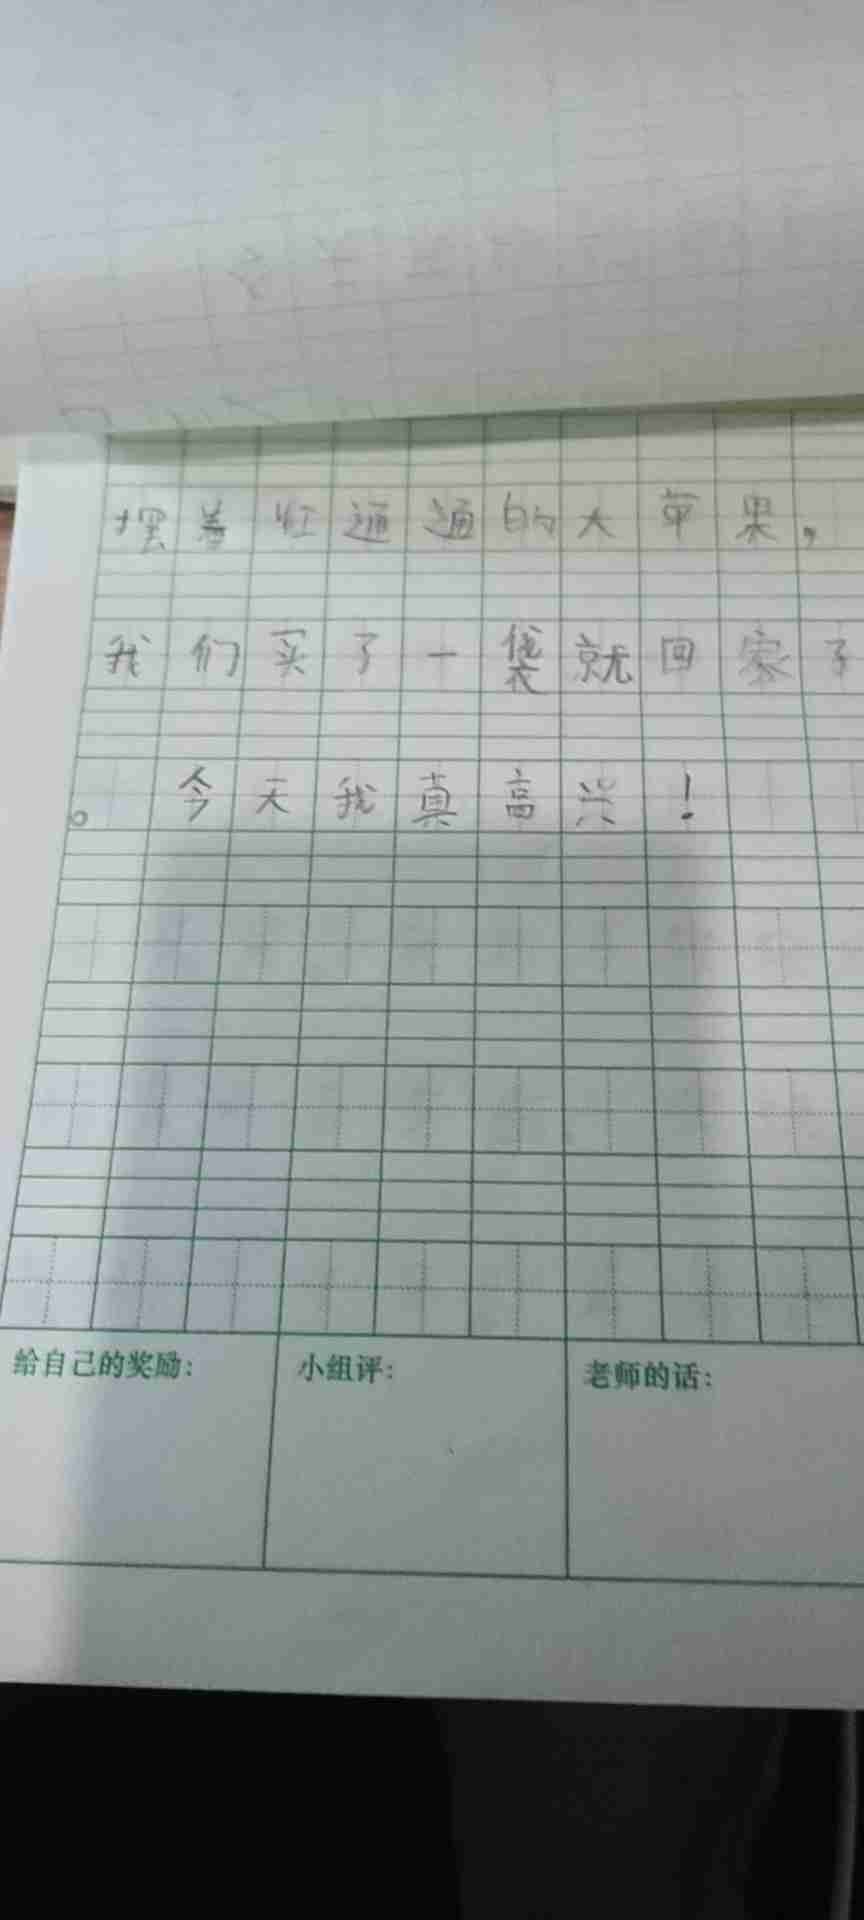 摆着红通通的大苹果，
我们买了一袋就回家了
。今天我真高兴！
给自己的奖励：
小组评：
老师的话：